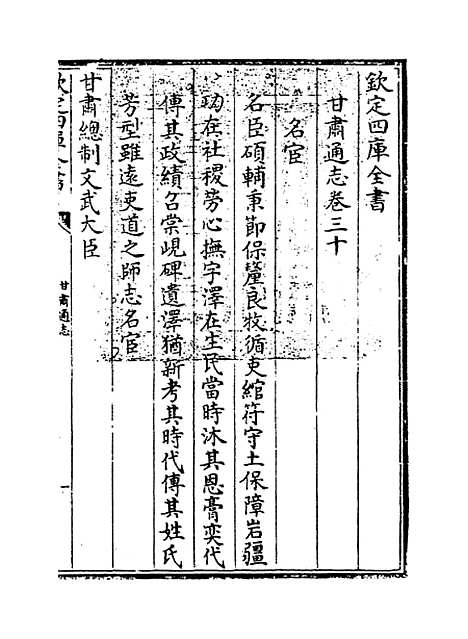 欽定四庫全書
甘肅通志卷三十
名宦
名臣碩輔秉節保釐良牧循吏綰符守土保障岩疆
功在社稷勞心撫字澤在生民當時沐其恩膏奕代
傳其政績召棠峴碑遺澤猶新考其時代傳其姓氏
芳型雖遠吏道之師志名宦
甘肅總制文武大臣
欽定四庫全書
甘肅通志
一